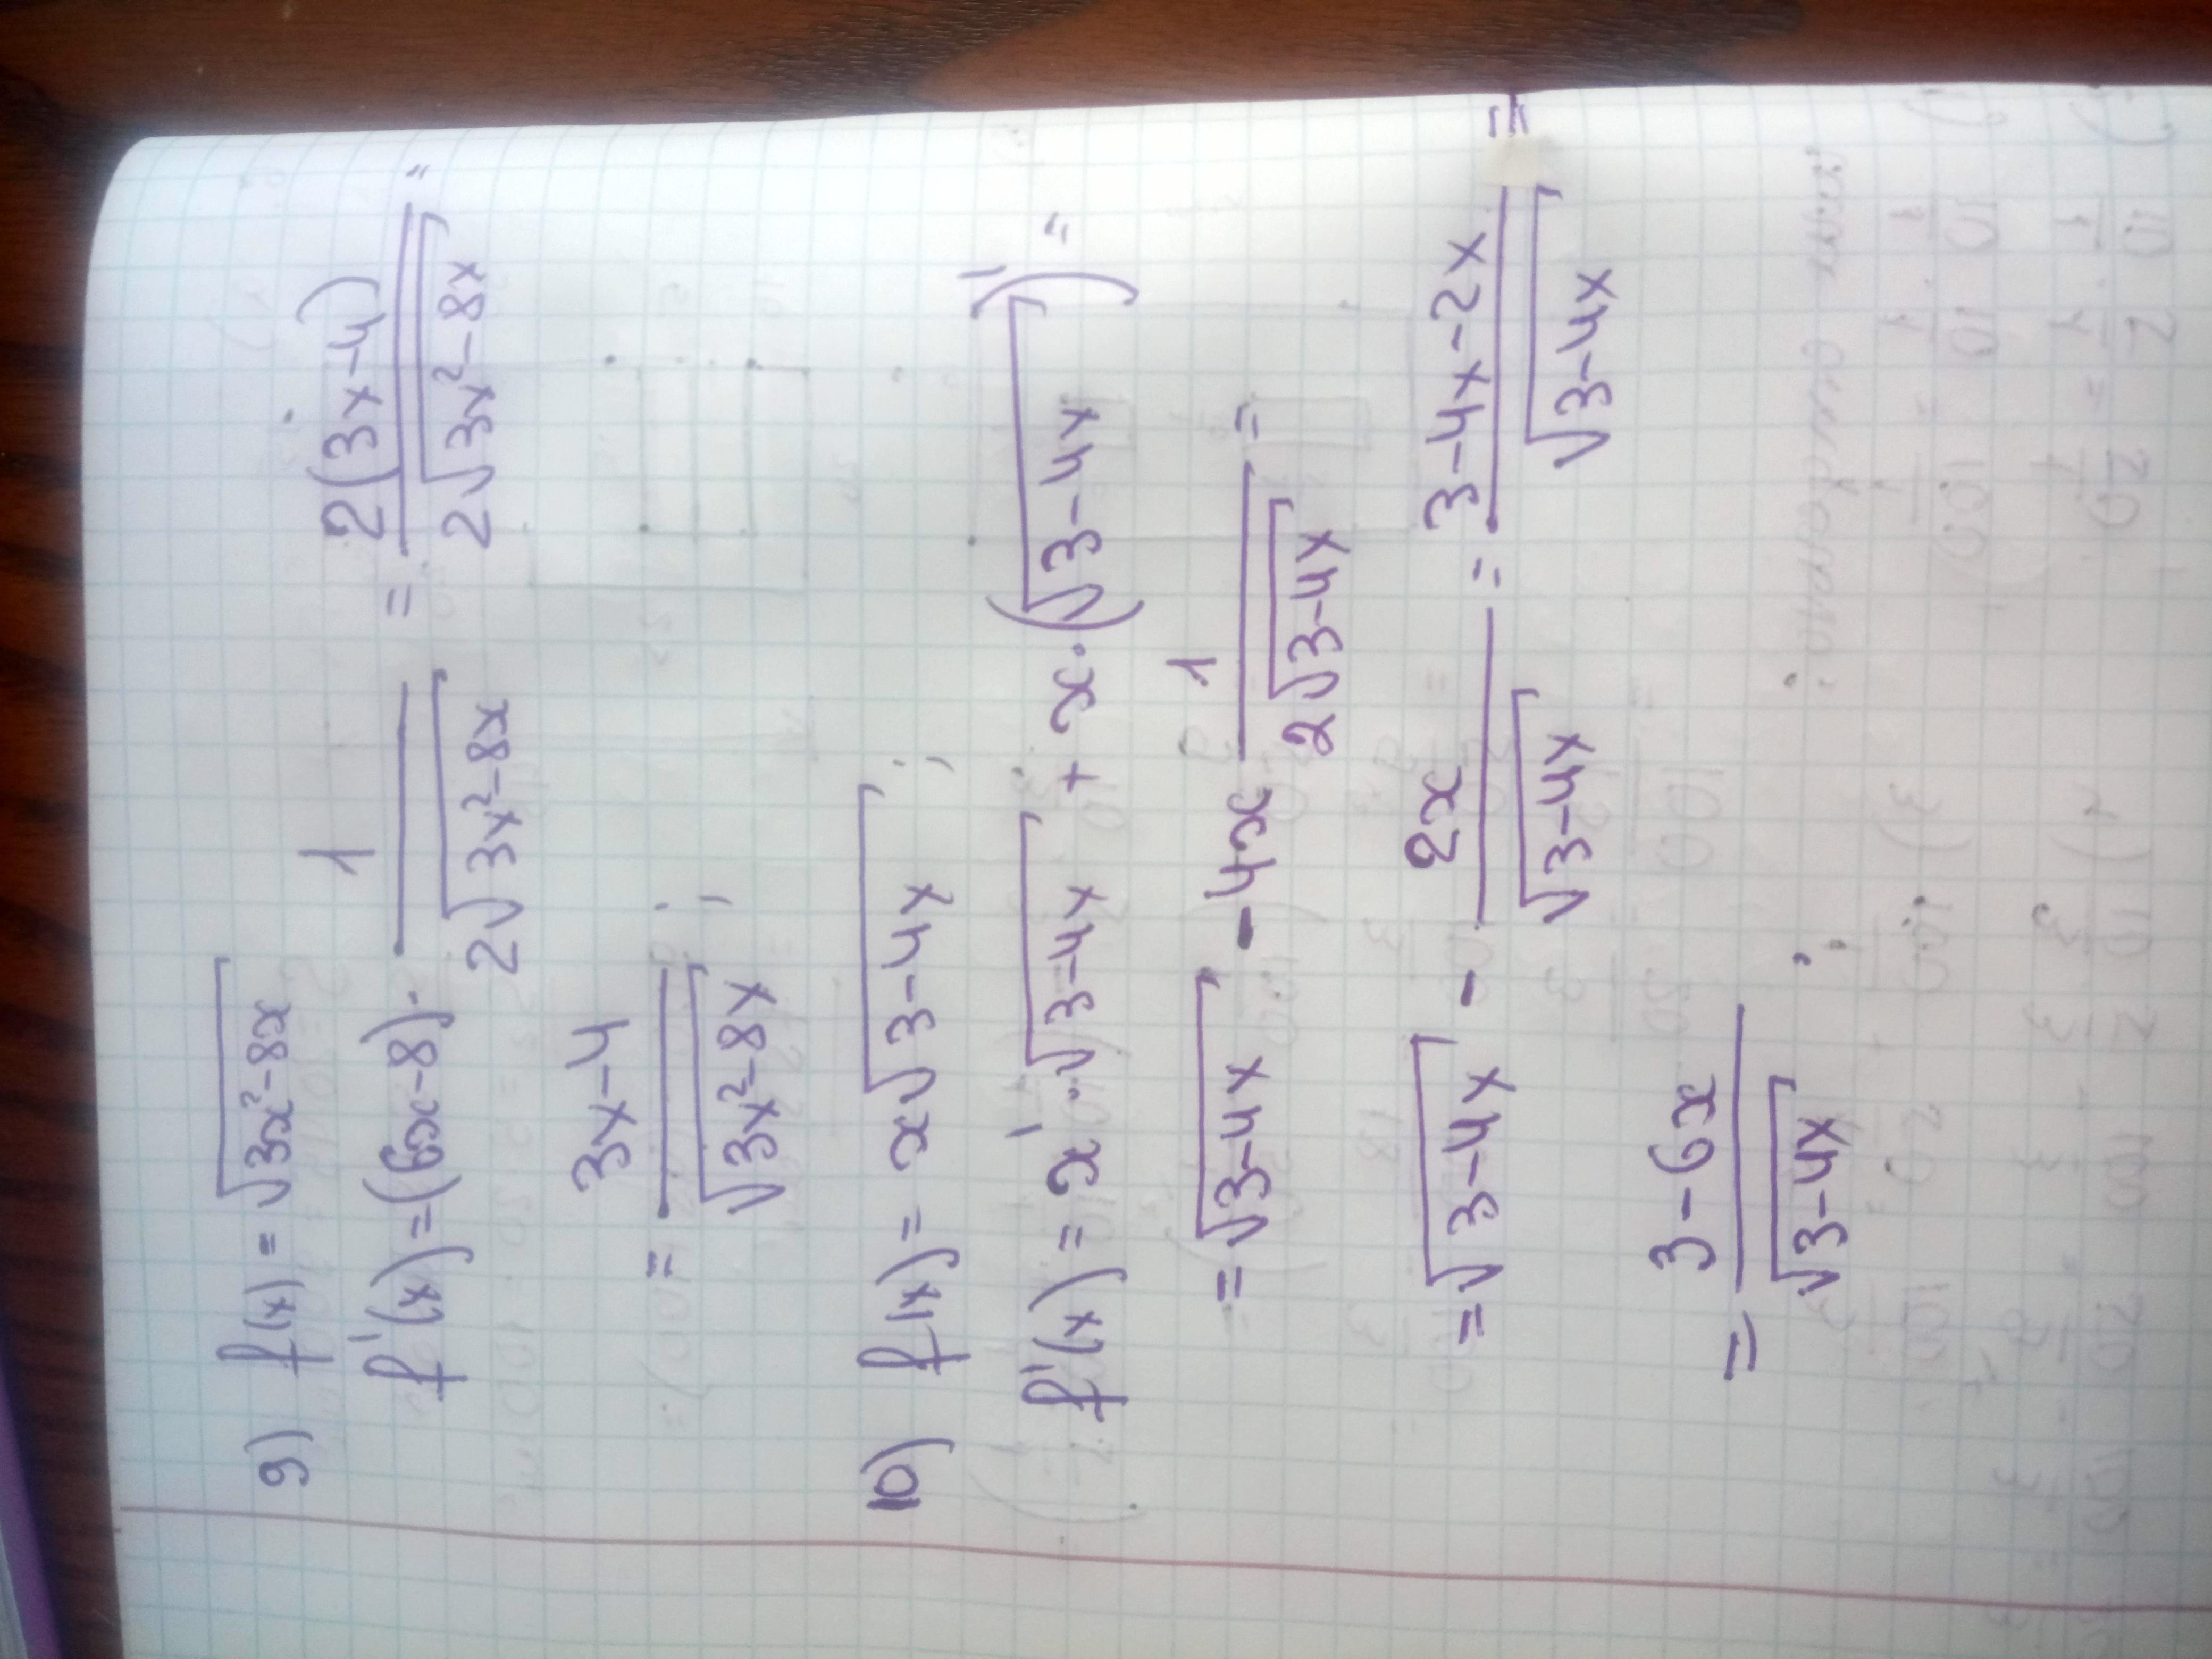 9) f(x) = √(3x²-8x)
f'(x) = (6x-8)· 1/(2√(3x²-8x)) = 2(3x-4)/(2√(3x²-8x)) =
= (3x-4)/√(3x²-8x) ;
10) f(x) = x√(3-4x) ;
f'(x) = x'·√(3-4x) + x·(√(3-4x))' =
= √(3-4x) - 4x 1/(2√(3-4x)) =
= √(3-4x) - 2x/√(3-4x) = (3-4x-2x)/√(3-4x) =
= (3-6x)/√(3-4x) ;